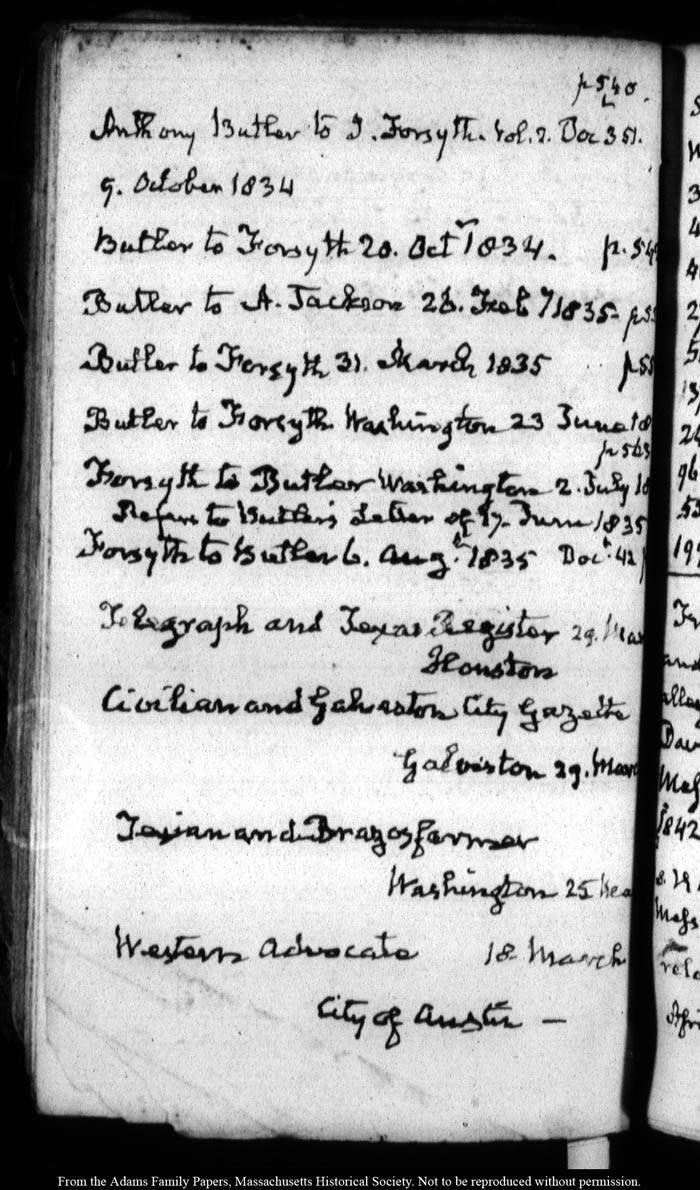 p 540.
Anthony Butler to J. Forsyth. Vol. 2. Doc 351.
9. October 1834
Butler to Forsyth 20. Octr 1834. p. 54
Butler to A. Jackson 26. Feby 1835 p 55
Butler to Forsyth 31. March 1835 p 55
Butler to Forsyth Washington 23 June 18
p 563
Forsyth to Butler Washington 2. July 18
Refers to Butler's Letter of 17. June 1835
Forsyth to Butler 6. Aug.t 1835 Doct. 42
Telegraph and Texas Register 29. Mar
Houston
Civilian and Galveston City Gazette
Galveston 29. Marc
Texian and Brazos farmer
Washington 25
Western Advocate 18 March
City of Austin —
3
4
4
2
5
13
24
96
53
191
and
alleg
Dav
1842
Afri
From the Adams Family Papers, Massachusetts Historical Society. Not to be reproduced without permission.